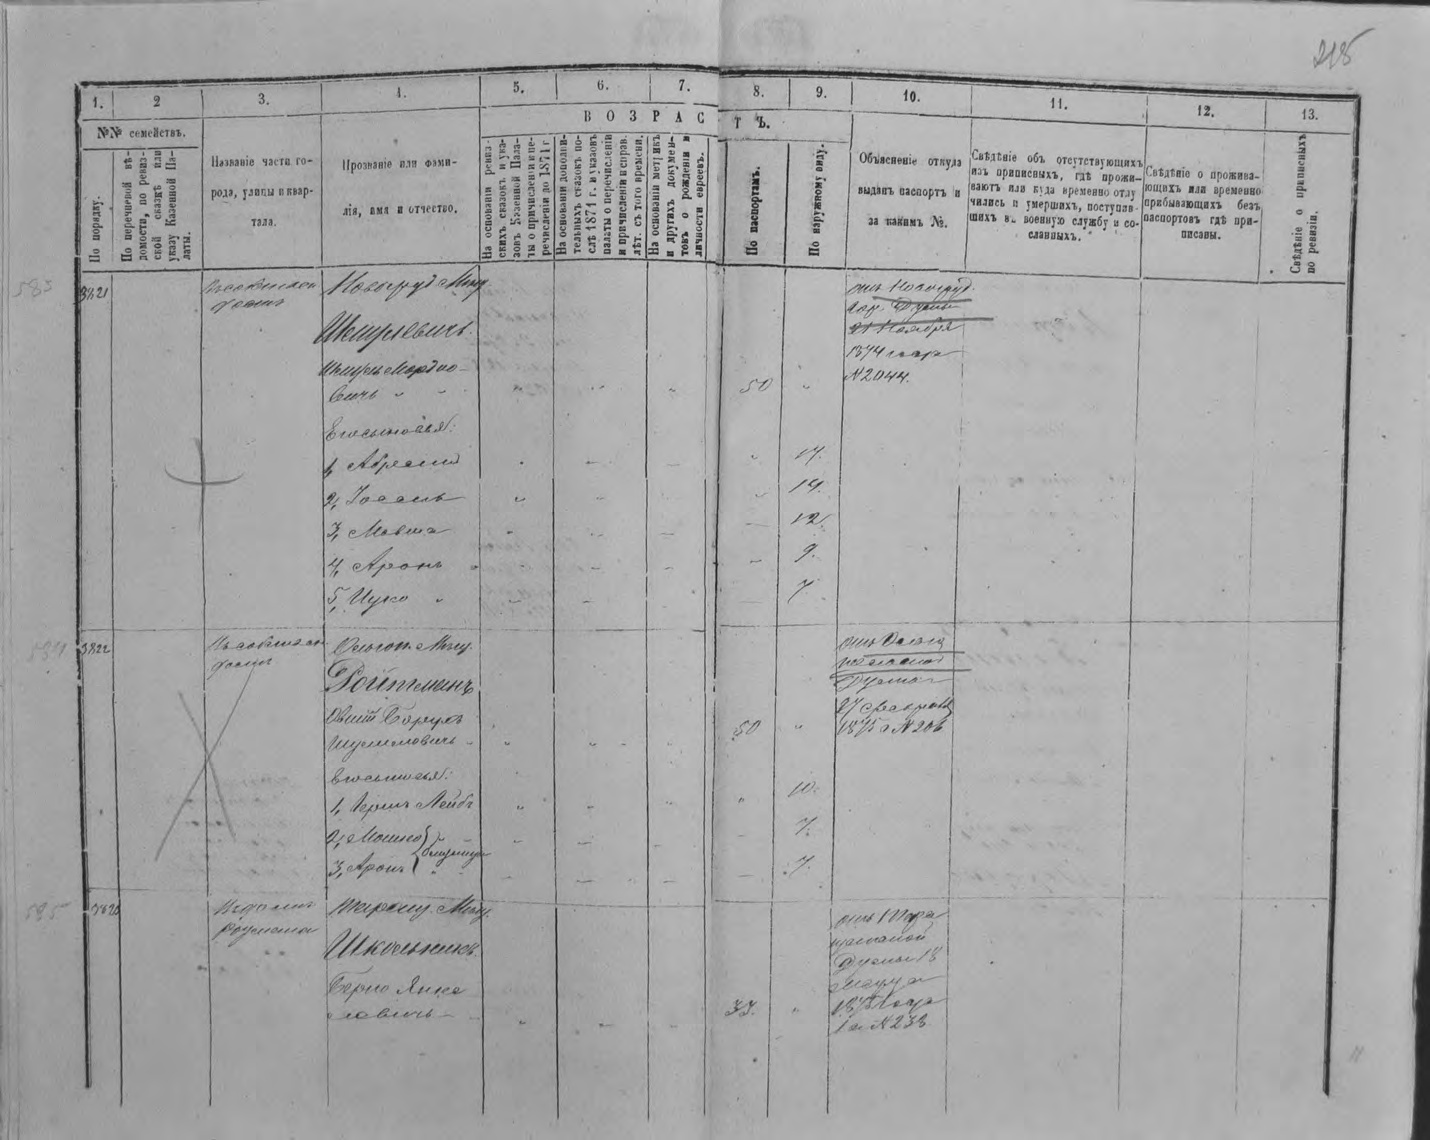 215
1.
2
3.
4.
5.
6.
7.
8.
9.
10.
11.
12.
13.
№№ семействъ.
ВОЗРАСТЪ.
По порядку.
По перечневой вѣ-
домости, по ревиз-
ской сказкѣ или
указу Казенной Па-
латы.
Названіе части го-
рода, улицы и квар-
тала.
Прозваніе или фами-
лія, имя и отчество.
На основаніи ревиз-
скихъ сказокъ и ука-
зовъ Казенной Пала-
ты о причисленіи и пе-
речисленіи до 1874 г
На основаніи дополни-
тельныхъ сказокъ по-
слѣ 1874 г. и указовъ
палаты о перечисленіи
и причисленіи и справ.
лѣт. съ того времени.
На основаніи метрикъ
и другихъ докумен-
товъ о рожденіи и
личности евреевъ.
По паспортамъ.
По наружному виду.
Объясненіе откуда
выданъ паспортъ и
за какимъ №.
Свѣдѣніе объ отсутствующихъ
изъ приписныхъ, гдѣ прожи-
ваютъ или куда временно отлу-
чились и умершихъ, поступив-
шихъ въ военную службу и со-
сланныхъ.
Свѣдѣніе о прожива-
ющихъ или временно
прибывающихъ безъ
паспортовъ гдѣ при-
писаны.
Свѣдѣніе о приписныхъ
по ревизіи.
583
3821
Новогруд. Мѣщ.
Шмулевичъ
Шмуль Мордхо-
вичъ
50
Его сыновья:
1, Абрамъ 17.
2, Іосель 14.
3, Мовша 12.
4, Аронъ 9.
5, Ицко 7.
отъ Новогруд.
гор. Думы
21 Ноября
1874 года
№ 2044.
584
3822
Мѣщ.
Ройтманъ
Борухъ
Шулимовичъ
50
Его сыновья:
1, Гершъ Лейбъ 10.
2, Мошко 7.
3, Аронъ близнецы 7.
отъ
Думы
27
1875 г № 206
585
3823
Мѣщ.
Школьникъ
Берко Янке-
левичъ
33.
отъ
Думы 18
Марта
1875 года
за № 233.